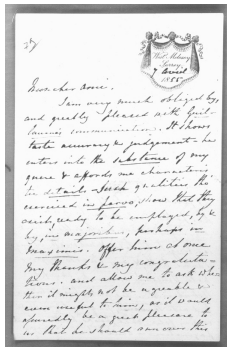 West Molesey
Surrey
7 Avril
1855
Mon cher ami.
I am very much obliged by,
and greatly pleased with Guil-
laume's communication. It shows
taste accuracy & judgement - he
enters into the substance of my
& affords me characteris
tic details - Such qualities tho
exercised in parvo, show that they
exist, ready to be employed, by &
by, in majoribus, perhaps in
maximis. Offer him at once
my thanks & my congratula-
tions. and allow me to ask whe-
ther it might not be agreeable &
even useful to him, as it would
assuredly be a great pleasure to
us that he should announce this